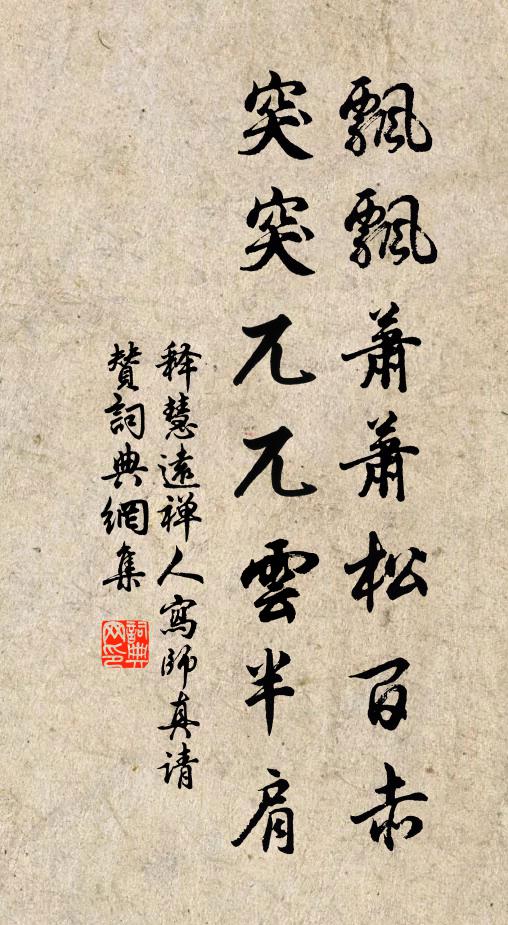 飄飄蕭蕭松百赤
突突兀兀雲半肩
释慧遠禅人寫師真请
賛詞典網集
詞典網印